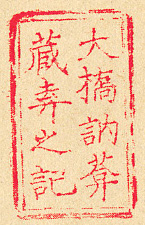 大橋訥葊
蔵弆之記